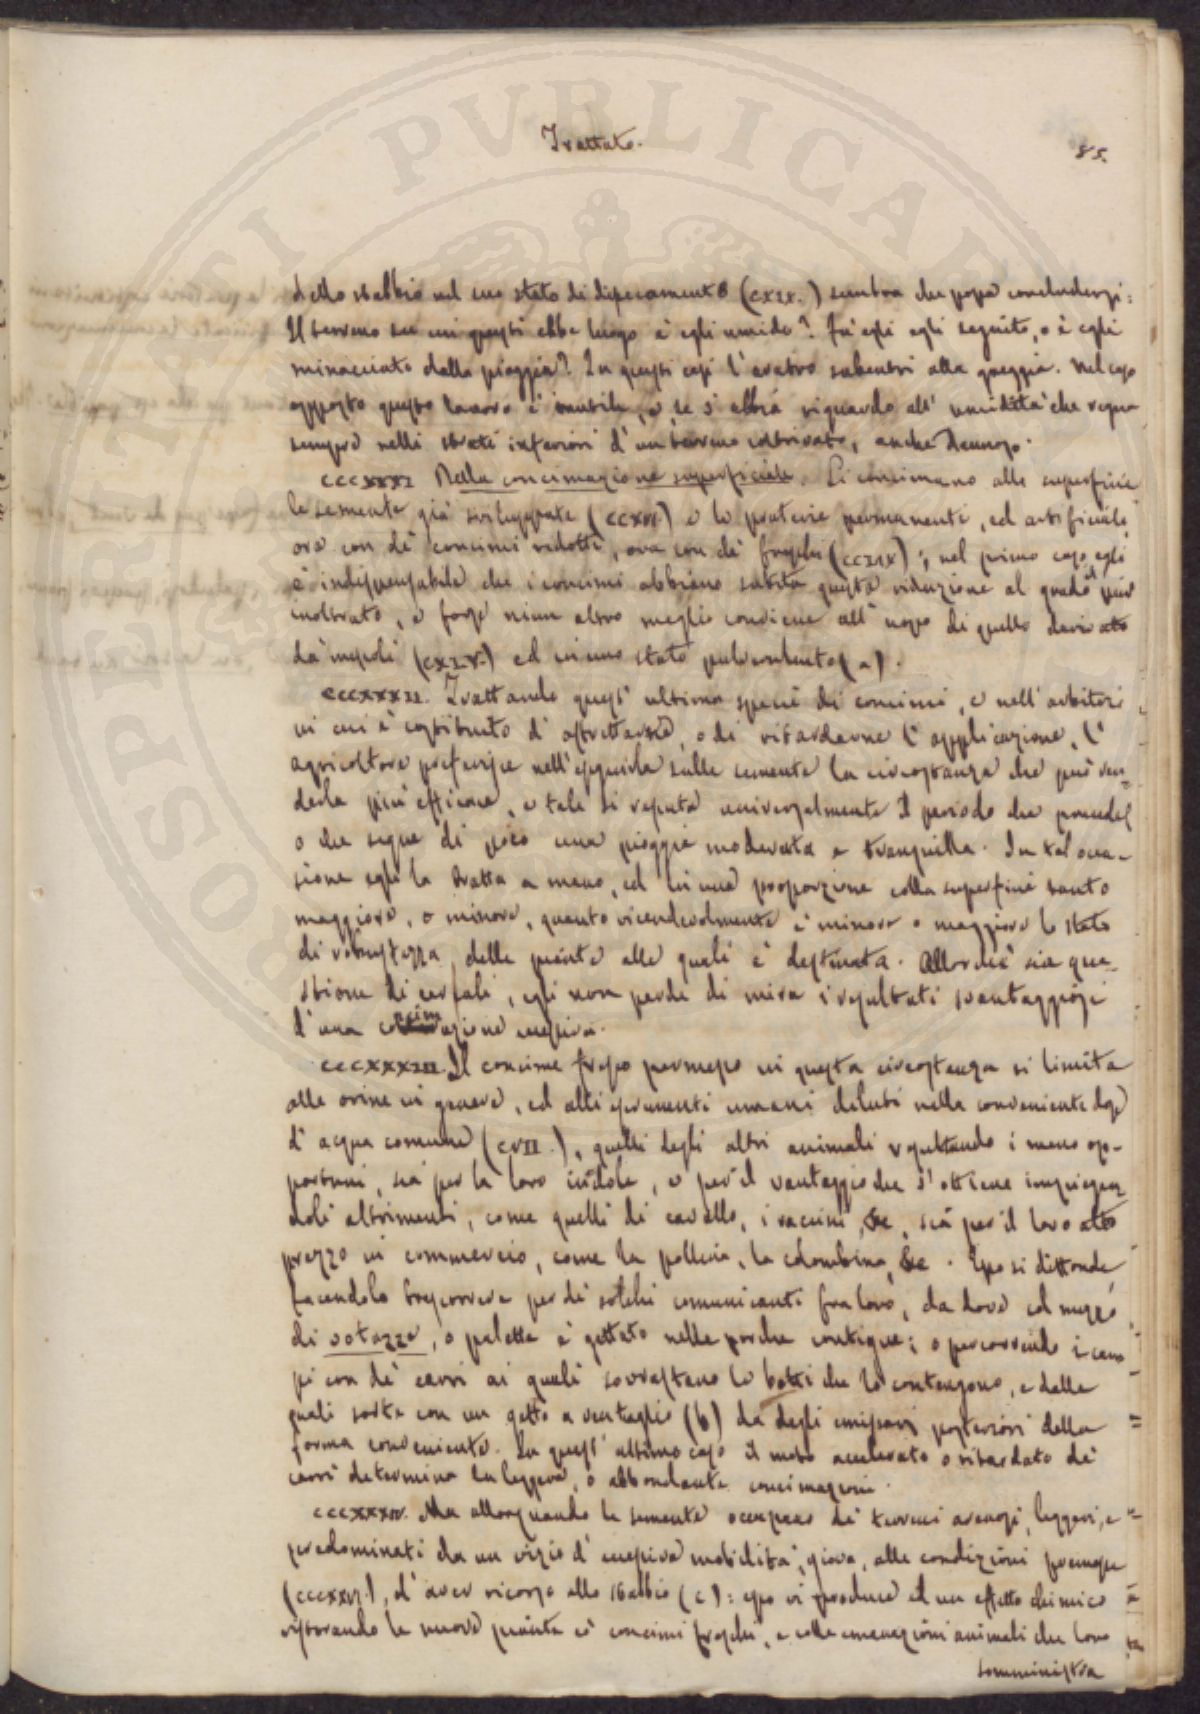 Trattato.
85.
dello stabbio nel suo stato di disseccamento (CXIX.) sembra che possa concludersi:
Il terreno su cui questi ebbe luogo è egli umido? Fu egli seguito, o è egli
minacciato dalla pioggia? In questi casi l'aratro subentri alla greggia. Nel caso
opposto questo lavoro è inutile, e, se s'abbia riguardo all'umidità che regna
sempre nelli strati inferiori d'un terreno coltivato, anche dannoso.
CCCXXXI Della concimazione superficiale. Si concimano alla superficie
le semente già sviluppate (CCXVI) e le praterie permanenti, ed artificiali
ora con de' concimi ridotti, ora con de' freschi (CCXIX); nel primo caso egli
è indispensabile che i concimi abbiano subita questa riduzione al grado il più
inoltrato, e forse niun altro meglio conviene all'uopo di quello derivato
da' (CXLV.) ed in uno stato pulverulento (a).
CCCXXXII. Trattando quest'ultima specie dei concimi, e nell'arbitrio
in cui è costituito d'affrettarne, o di ritardarne l'applicazione, l'
agricoltore preferisce nell'eseguirla sulle semente la circostanza che può ren-
derla più efficace, e tale si reputa universalmente il periodo che precede
o che segue di poco una pioggia moderata e tranquilla. In tal occa-
sione egli la tratta a mano, ed in una proporzione colla superficie tanto
maggiore, o minore, quanto vicendevolmente è minore o maggiore lo stato
di robustezza delle piante alle quali è destinata. Allorchè sia que-
stione di cereali, egli non perde di mira i resultati svantaggiosi
d'una concimazione eccessiva.
CCCXXXIII. Il concime fresco permesso in questa circostanza si limita
alle orine in genere, ed alli escrementi umani diluti nella conveniente dose
d'acqua comune (CVII.), quelli degli altri animali resultando i meno op-
portuni, sia per la loro indole, e per il vantaggio che s'ottiene impiegan
doli altrimenti, come quelli di cavallo, i vaccini, &c, sia per il loro alto
prezzo in commercio, come la pollina, la colombina, &c. Esso si diffonde
facendolo trascorrere per de' solchi comunicanti fra loro, da dove col mezzo
di votazze, o palette è gettato nelle porche contigue; o percorrendo i cam
pi con de' carri ai quali sovrastano le botti che lo contengono, e dalle
quali sorte con un getto a ventaglio (b) da degli emissari posteriori della
forma conveniente. In quest'ultimo caso il moto accelerato o ritardato de'
carri determina la leggera, o abbondante concimazione.
CCCXXXIV. Ma allorquando le semente occupano de' terreni arenosi, leggeri, e
predominati da un vizio d'eccessiva mobilità, giova, alle condizioni premesse
(CCCXXVI.), d'aver ricorso allo stabbio (c): esso vi produce ed un effetto chimico
ristorando le nuove piante co' concimi freschi, e colle emanazioni animali che loro
somministra